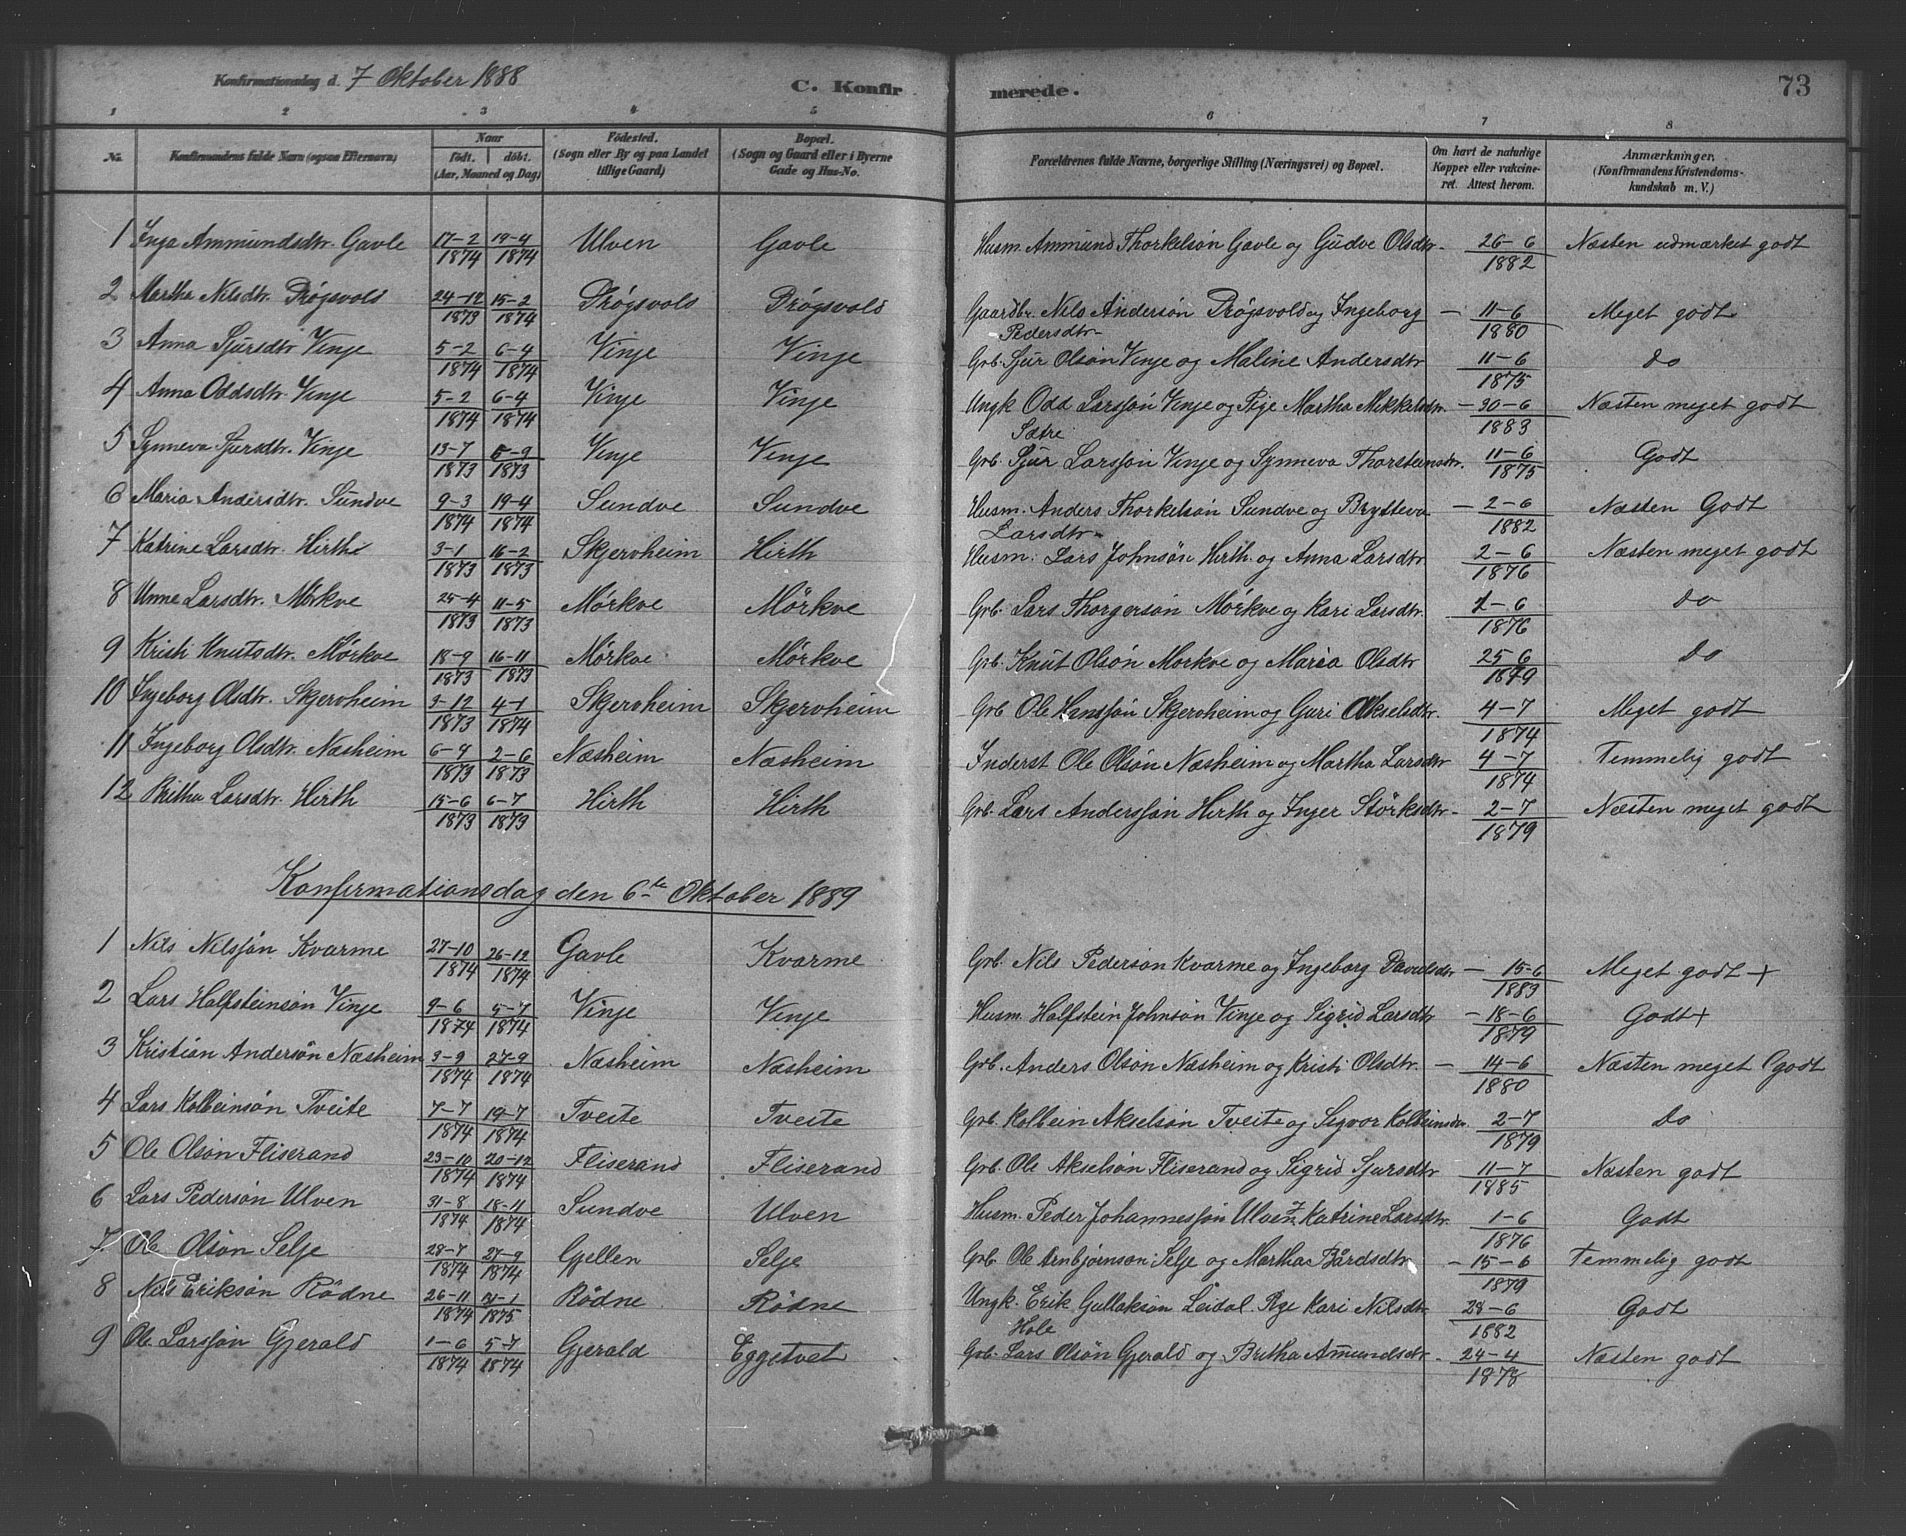 Konfirmationsdag d. 7 Oktober 1888 C. Konfirmerede. 73
1 2 3 4 5 6 7 8
No. Konfirmandens fulde Navn (ogsaa Efternavn) Naar födt. döbt. (Aar, Maaned og Dag) Födested. (Sogn eller By og paa Landet tillige Gaard) Bopæl. (Sogn og Gaard eller i Byerne Gade og Hus-No. Forældrenes fulde Navne, borgerlige Stilling (Næringsvei) og Bopæl. Om havt de naturlige Kopper eller vakcineret. Attest herom. Anmærkninger. (Konfirmandens Kristendomskundskab m. V.)
1 Inga Ammundsdtr. Gavle 17-2 1874 19-4 1874 Ulven Gavle Husm. Ammund Thorkelsön Gavle og Gudve Olsdtr. 26-6 1882 Næsten udmærket godt
2 Martha Nilsdtr. Drøgsvold 24-12 1873 15-2 1874 Drøgsvold Drøgsvold Gaardbr. Nils Andersön Drøgsvold og Ingeborg Pedersdtr. 11-6 1880 Meget godt
3 Anna Sjursdtr Vinje 5-2 1874 6-4 1874 Vinje Vinje Grb. Sjur Olsön Vinje og Maline Andersdtr 11-6 1875 do
4 Anna Oddsdtr. Vinje 5-2 1874 6-4 1874 Vinje Vinje Ungk Odd Larsson Vinje og Pige Martha Mikkelsdtr. Sætre 30-6 1883 Næsten meget godt
5 Synneva Sjursdtr. Vinje 13-7 1873 -9 1873 Vinje Vinje Grb. Sjur Larsson Vinje og Synneva Thorsteinsdtr. 11-6 1875 Godt
6 Maria Andersdtr. Sundve 9-3 1874 19-4 1874 Sundve Sundve Husm. Anders Thorkelsön Sundve og Brytteva Larsdtr. 2-6 1882 Næsten Godt
7 Katrine Larsdtr. Hirth 3-1 1873 16-2 1873 Skjervheim Hirth Husm. Lars Johnsön Hirth og Anna Larsdtr 2-6 1876 Næsten meget godt
8 Unne Larsdtr. Mörkve 25-4 1873 11-5 1873 Mörkve Mörkve Grb. Lars Thorgersön Mörkve og Kari Larsdtr -6 1876 do
9 Kristi Knutsdtr. Mørkve 18-9 1873 16-11 1873 Mörkve Mörkve Grb. Knut Olsön Morkve og Maria Olsdtr 25-6 1879 do
10 Ingeborg Olsdtr. Skjervheim 3-12 1873 4-1 1874 Skjervheim Skjervheim Grb Ole Hansson Skjervheim og Guri Akselsdtr. 4-7 1874 Meget godt
11 Ingeborg Olsdtr. Næsheim 6-4 1873 2-6 1873 Næsheim Næsheim Inderst Ole Olsön Næsheim og Martha Larsdtr 4-7 1874 Temmelig godt
12 Britha Larsdtr. Hirth 15-6 1873 6-7 1873 Hirth Hirth Grb. Lars Andersson Hirth og Inger Störksdtr. 2-7 1879 Næsten meget godt
Konfirmationsdag den 6te Oktober 1889
1 Nils Nilssön Kvarme 27-10 1874 26-12 1874 Gavle Kvarme Grb. Nils Pederson Kvarme og Ingeborg Davidsdtr 15-6 1883 Meget godt +
2 Lars Halfsteinsön Vinje 9-6 1874 5-7 1874 Vinje Vinje Husm. Halfstein Johnsön Vinje og Sigrid Larsdtr 18-6 1879 Godt +
3 Kristian Andersön Næsheim 3-9 1874 27-9 1874 Næsheim Næsheim Grb. Anders Olson Næsheim og Kristi Olsdtr. 14-6 1880 Næsten meget Godt
4 Lars Kolbeinsön Tveite 7-7 1874 19-7 1874 Tveite Tveite Grb. Kolbein Akselsön Tveite og Sigvor Kolbeinsdtr. 2-7 1879 Do
5 Ole Olsön Fliserand 23-10 1874 20-12 1874 Fliserand Fliserand Grb. Ole Akselsön Fliserand og Sigrid Sjursdtr 11-7 1885 Næsten godt
6 Lars Pedersön Ulven 31-8 1874 18-11 1874 Sundve Ulven Husm. Peder Johannessön Ulven Katrine Larsdtr. 1-6 1876 Godt
7. Ole Olsön Selje 28-7 1874 27-9 1874 Gjellen Selje Grb. Ole Arnbjörnson Selje og Martha Bårdsdtr 15-6 1879 Temmelig godt
8 Nils Erikson Rödne 26-11 1874 31-1 1875 Rödne Rödne Ungk. Erik Gullaksön Leidal Pge Kari Nilsdtr Hole 28-6 1882 Godt
9 Ole Larssön Gjerald 1-6 1874 5-7 1874 Gjerald Eggetvet Grb. Lars Olsön Gjerald og Britha Amundsdtr. 24-4 1878 Næsten godt